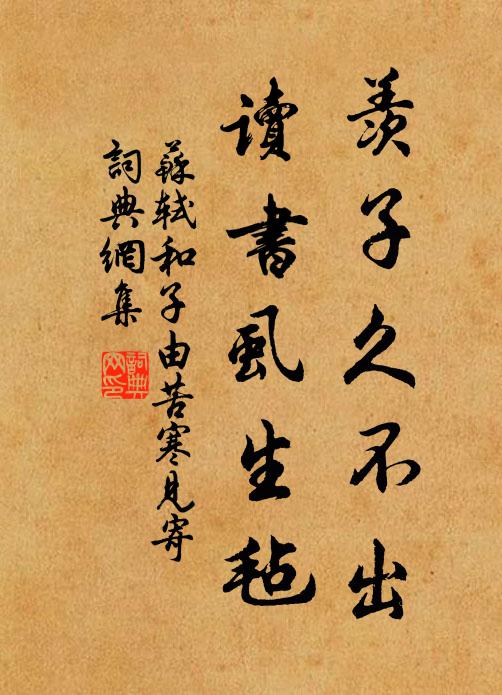 羨子久不出
讀書虱生氈
蘇軾和子由苦寒見寄
詞典網集
詞典
网印